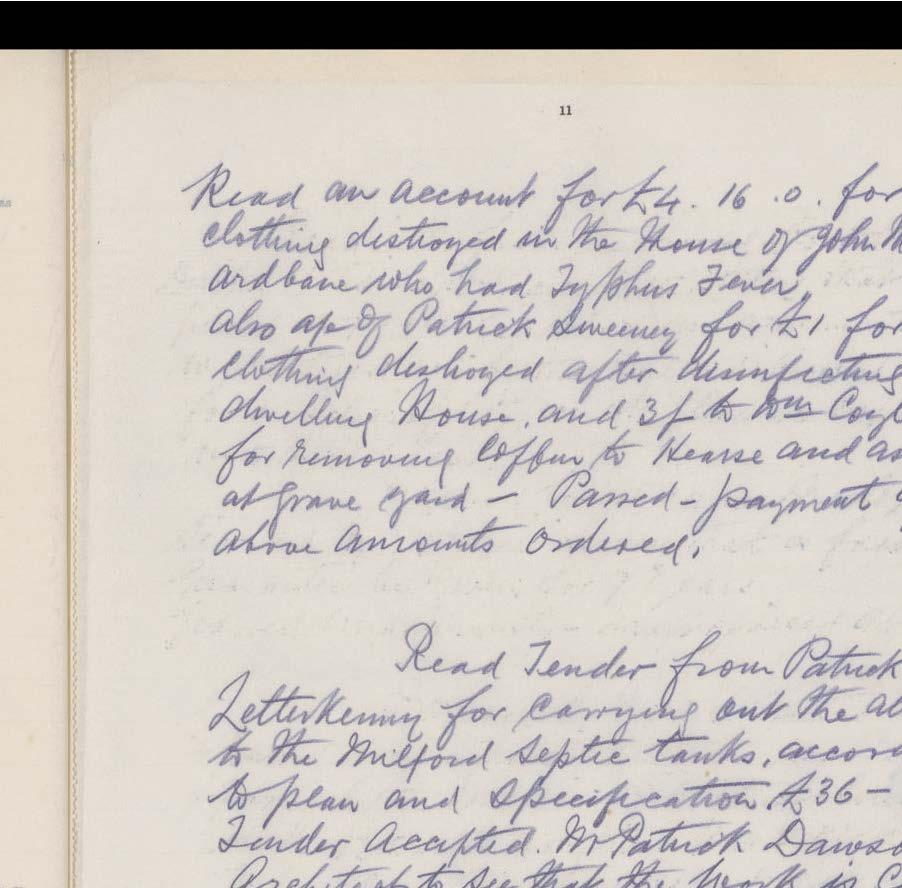 11
Read an account for £4. 16 .0. for
clothing destroyed in the House of John M
ardbane who had Typhus Fever,
also a/c of Patrick Sweeney for £1 for
clothing destroyed after disinfecting
dwelling House, and 3/ to Wm Coyl
for removing Coffin to Hearse and as
at grave yard – Passed – payment
above amounts ordered.
Read Tender from Patrick
Letterkenny for carrying out the al
to the Milford Septic tanks, accord
to plan and specification £36 –
Tender Accepted. Mr Patrick Dawso
Architect to see that the work is